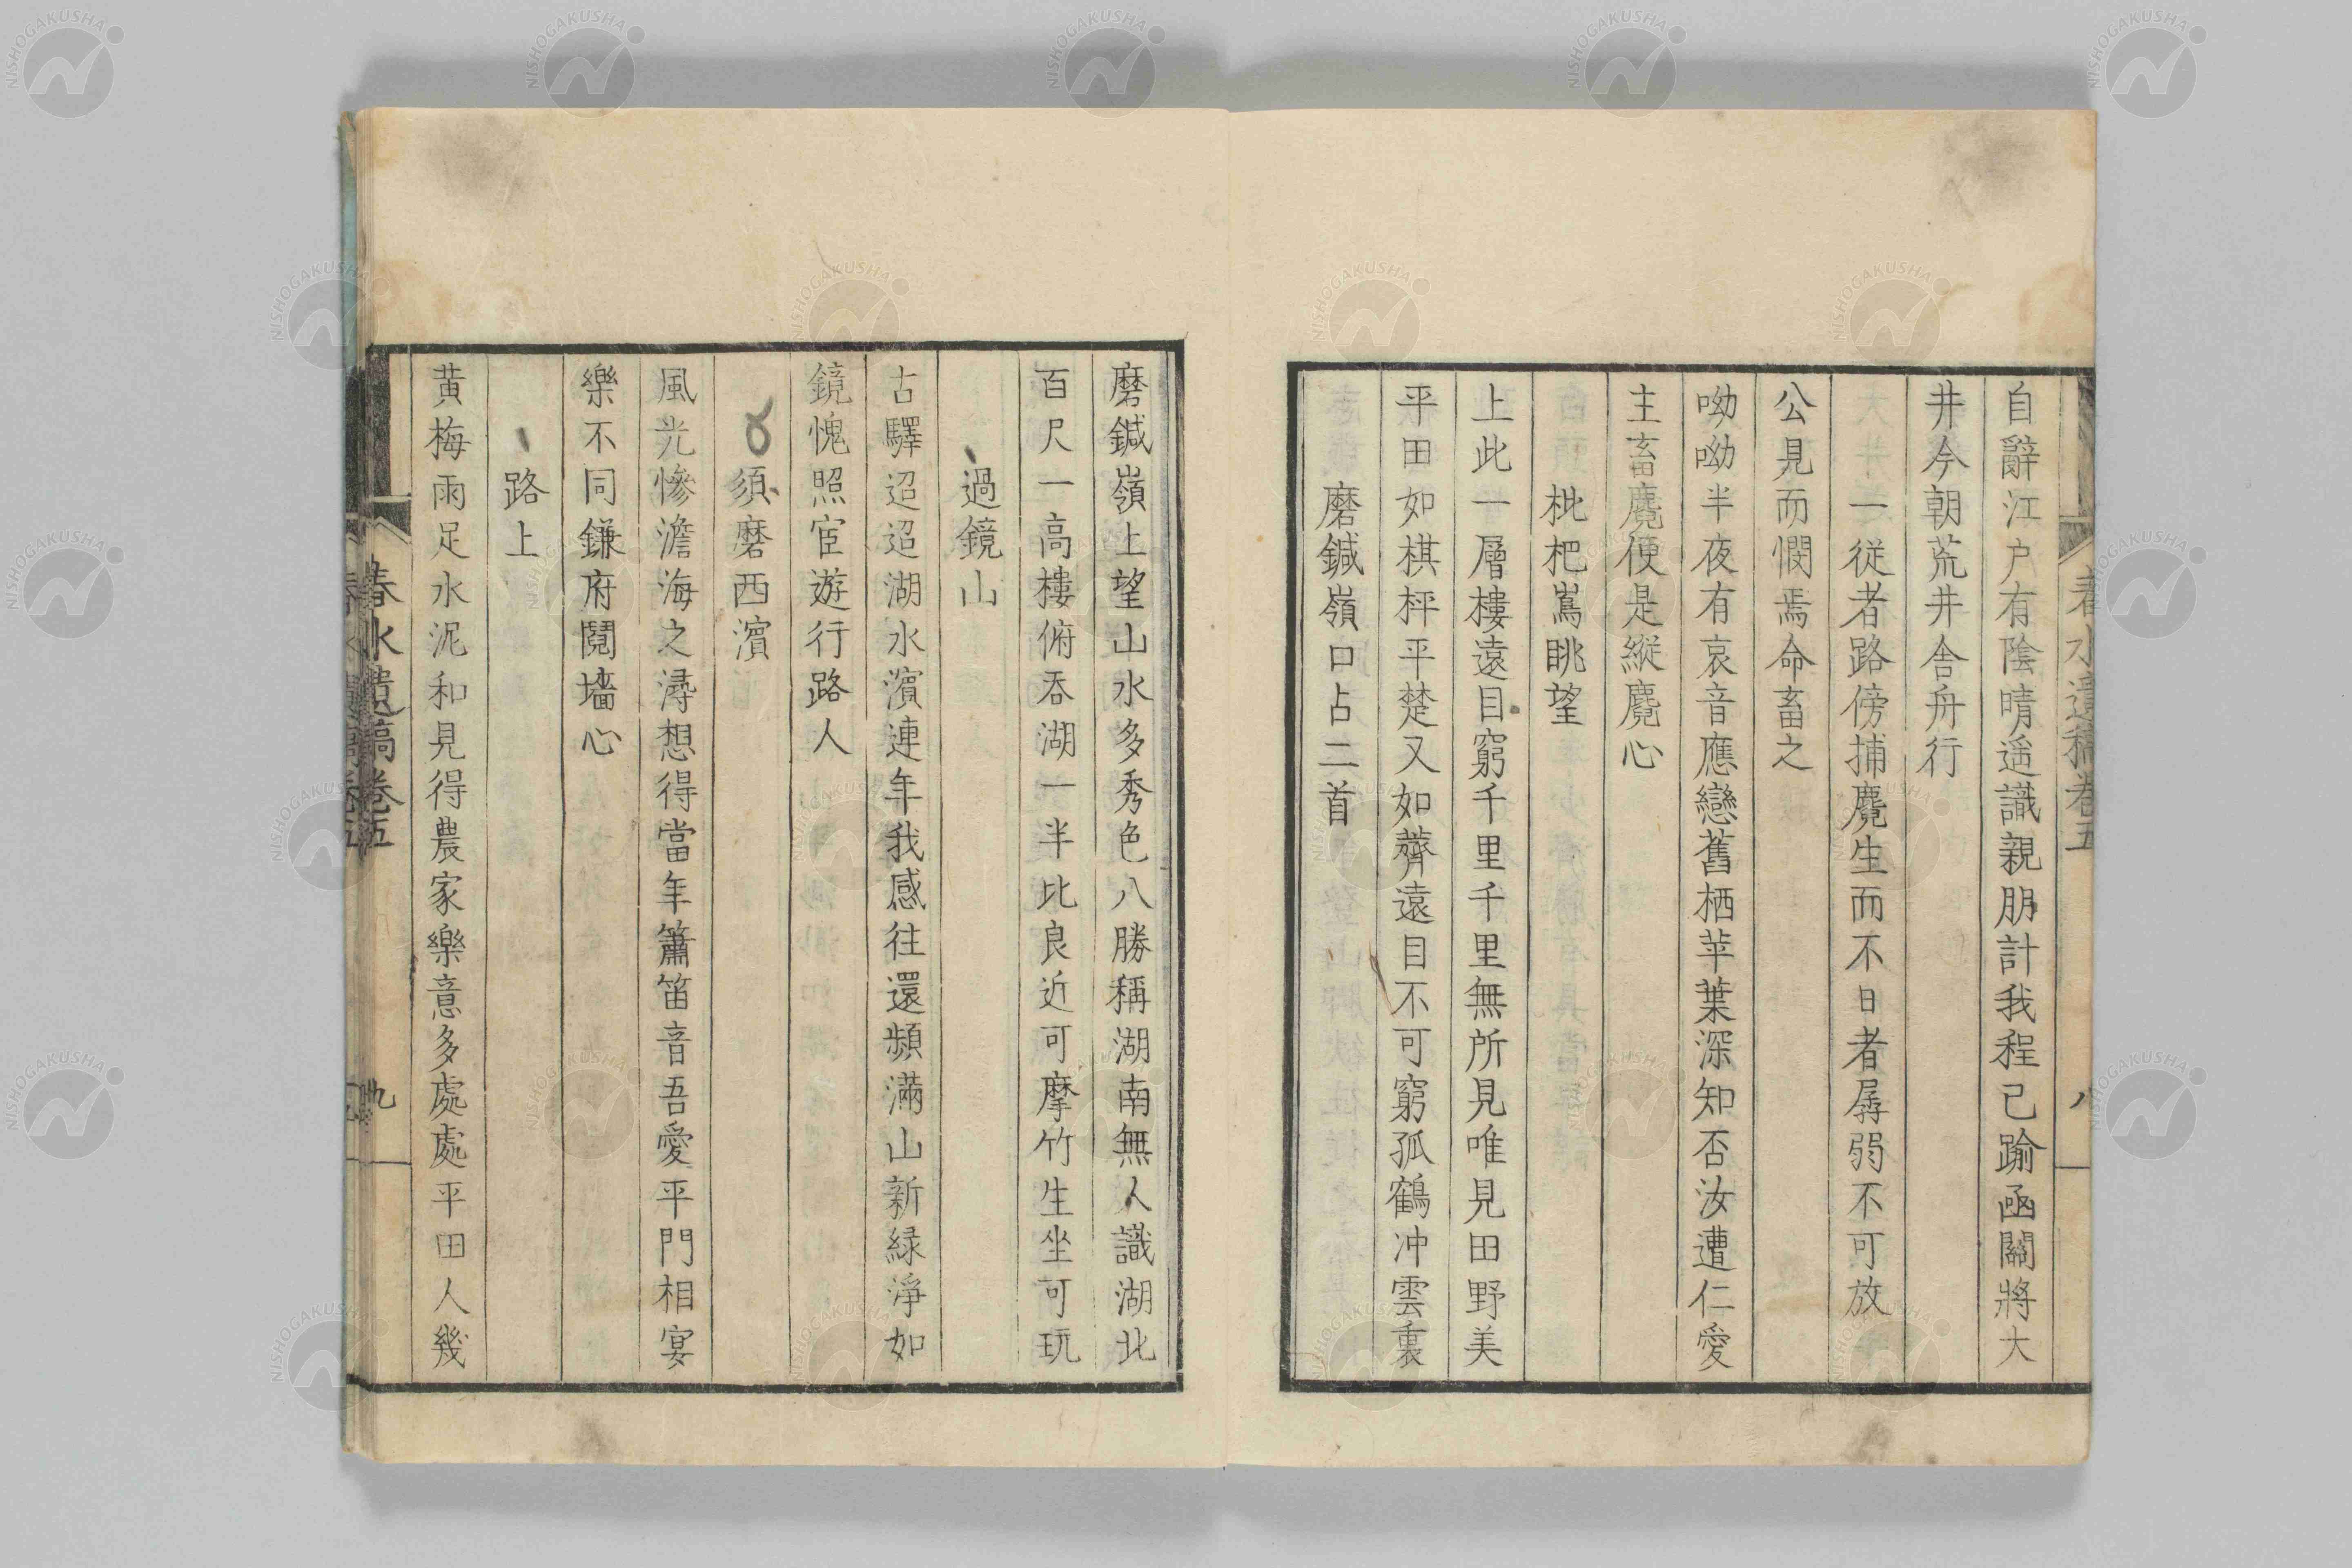 春水遺稿卷五
八
自辭江戸有陰晴遥識親朋計我程已踰函關將大
井今朝荒井舎舟行
一従者路傍捕麑生而不日者孱弱不可放
公見而憫焉命畜之
呦呦半夜有哀音應戀舊栖苹葉深知否汝遭仁愛
主畜麑便是縦麑心
枇杷嶌眺望
上此一層樓遠目窮千里千里無所見唯見田野美
平田如棋枰平楚又如薺遠目不可窮孤鶴冲雲裏
磨鍼嶺口占二首
磨鍼嶺上望山水多秀色八勝稱湖南無人識湖北
百尺一高樓俯吞湖一半比良近可摩竹生坐可玩
過鏡山
古驛迢迢湖水濱連年我感往還頻滿山新緑淨如
鏡愧照宦遊行路人
須磨西濱
風光慘澹海之潯想得當年簫笛音吾愛平門相宴
樂不同鎌府鬩墻心
路上
黄梅雨足水泥和見得農家樂意多處處平田人幾
春水遺稿卷五
九
NISHOGAKUSHA